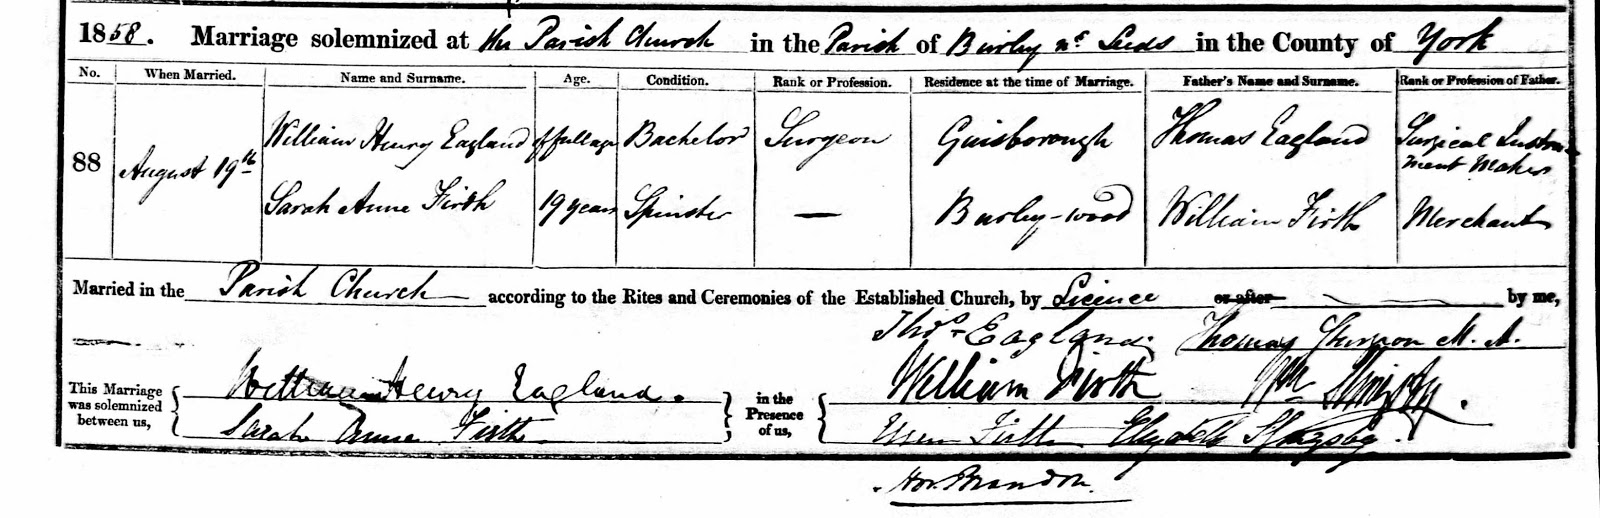 1858. Marriage solemnized at the Parish Church in the Parish of Burley nr Leeds in the County of York
No. When Married. Name and Surname. Age. Condition. Rank or Profession. Residence at the time of Marriage. Father's Name and Surname. Rank or Profession of Father.
88 August 19th William Henry Eagland of full age Bachelor Surgeon Guisborough Thomas Eagland Surgical Instrument Maker
Sarah Anne Firth 19 years Spinster — Burley-wood William Firth Merchant
Married in the Parish Church according to the Rites and Ceremonies of the Established Church, by Licence or after by me,
Thos Eagland Thomas M. A.
This Marriage was solemnized between us, William Henry Eagland. in the Presence of us, William Firth Wm
Sarah Anne Firth Ellen Firth Elizabeth
Hor. Brandon.